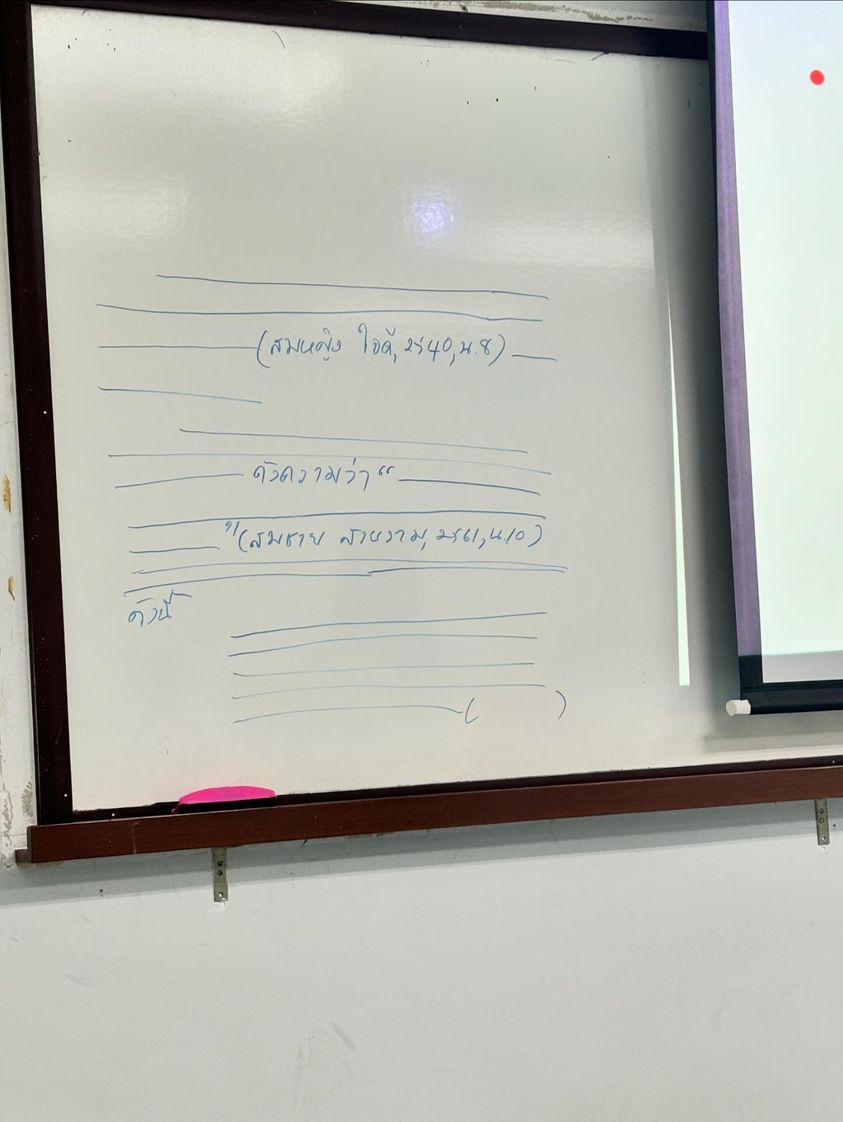 (สมหญิง ใจดี, 2540, น.8)
ดังความว่า“
”(สมชาย สายงาม, 2561, น.10)
ดังนี้
( )